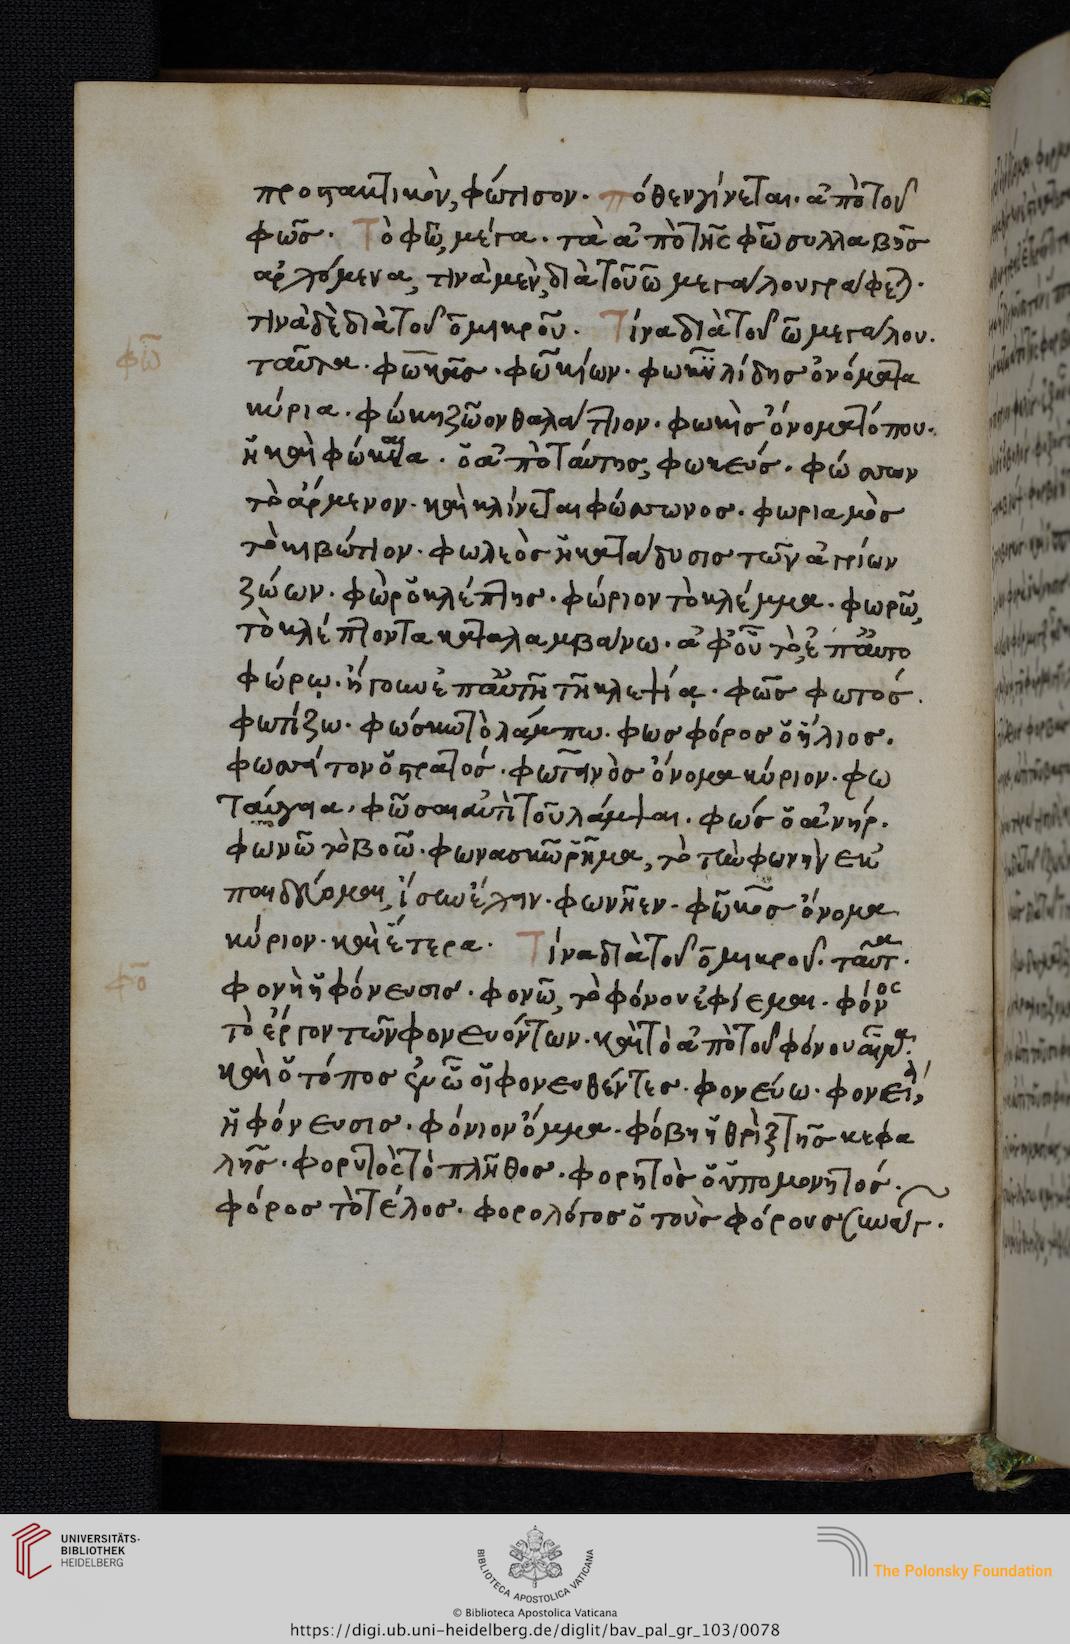 προστακτικὸν, φώτισον. πόθεν γίνεται. ἀπὸ τοῦ
φῶς. Τὸ φῶ, μέγα. τὰ ἀπὸ τῆς φῶ συλλαβῆς
ἀρχόμενα, τινὰ μὲν, διὰ τοῦ ω μεγάλου γράφε).
τινὰ δὲ διὰ τοῦ ο μικροῦ. Τίνα διὰ τοῦ ω μεγάλου.
φω
ταῦτα. φωκᾶς. φωκίων. φωκυλίδης ὀνόματα
κύρια. φώκη ζῶον θαλάττιον. φωκὶς ὄνομα τόπου.
ἢ καὶ φώκαια. ὁ ἀπὸ ταύτης, φωκεύς. φώσσων
τὸ ἄρμενον. καὶ κλίνεται φώσσωνος. φωριαμὸς
τὸ κιβώτιον. φωλεὸς ἡ κατάδυσις τῶν ἀγρίων
ζώων. φὼρ ὁ κλέπτης. φώριον τὸ κλέμμα. φωρῶ,
τὸ κλέπτοντα καταλαμβάνω. ἀφ' οὗ τὸ, ἐπ' αὐτο
φώρῳ. ἤγουν ἐπ' αὐτῇ τῇ κλεψίᾳ. φῶς φωτός.
φωτίζω. φώσκω τὸ λάμπω. φωσφόρος ὁ ἥλιος.
ὄνομα κύριον. φω
φῶσαι ἀντὶ τοῦ λάμψαι. φώς ὁ ἀνήρ.
φωνῶ τὸ βοῶ. φωνασκῶ ῥῆμα, τὸ τὼ φωνὴν ἐκ
φωνῆεν. ὄνομα
κύριον. καὶ ἕτερα. Τίνα διὰ τοῦ ο μικροῦ. ταῦτα.
φο
φονὴ ἡ φόνευσις. φονῶ, τὸ φόνου ἐφίεμαι. φόνος
τὸ ἔργον τῶν φονευόντων. καὶ τὸ ἀπὸ τοῦ φόνου αἷμα.
καὶ ὁ τόπος ἐν ᾧ οἱ φονευθέντες. φονεύω.
ἡ φόνευσις. φόνιον ὄμμα. φόβη ἡ θρὶξ τῆς κεφα
λῆς. φορυτὸς τὸ πλῆθος. φορητὸς ὁ ὑπομονητός.
φόρος τὸ τέλος. φορολόγος ὁ τοὺς φόρους
UNIVERSITÄTS-
BIBLIOTHEK
HEIDELBERG
BIBLIOTECA APOSTOLICA VATICANA
The Polonsky Foundation
© Biblioteca Apostolica Vaticana
https://digi.ub.uni-heidelberg.de/diglit/bav_pal_gr_103/0078